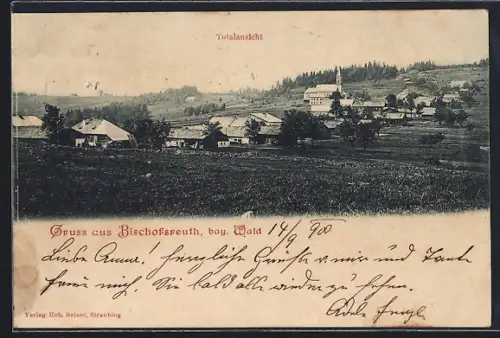 Totalansicht
Gruss aus Bischofsreuth, bay. Wald
14/9 900
Liebe Anna! herzliche Grüße v. mir und Tante
freue mich, Sie bald alle wieder zu sehen.
Adele
Verlag Hch. Seiser, Straubing